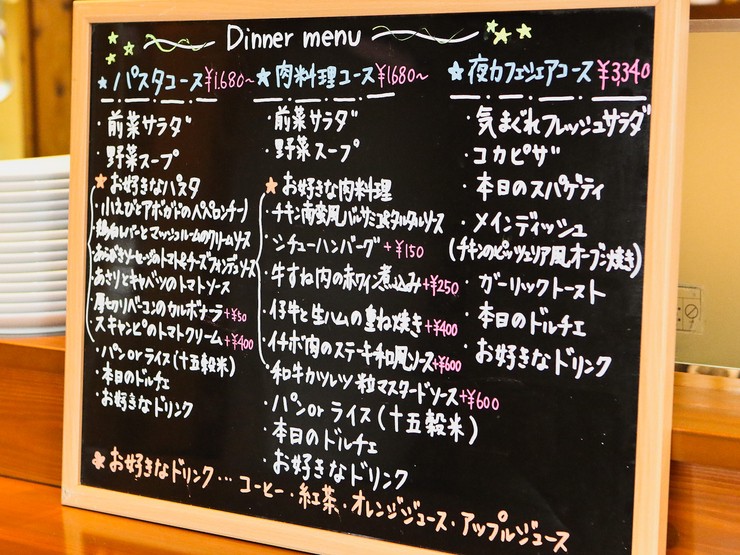 Dinner menu
★パスタコース ¥1,680~
・前菜サラダ
・野菜スープ
★お好きなパスタ
・小えびとアボガドのペペロンチーノ
・鶏白レバーとマッシュルームのクリームソース
・あらびきソーセージのトマト&チーズフォンデュソース
・あさりとキャベツのトマトソース
・厚切りベーコンのカルボナーラ +¥50
スキャンピのトマトクリーム +¥400
・パンorライス(十五穀米)
・本日のドルチェ
・お好きなドリンク
★肉料理コース ¥1680~
・前菜サラダ
・野菜スープ
★お好きな肉料理
・チキン南蛮風バルサミコ&タルタルソース
・シチューハンバーグ +¥150
・牛すね肉の赤ワイン煮込み +¥250
・仔牛と生ハムの重ね焼き +¥400
・イチボ肉のステーキ和風ソース +¥600
・和牛カツレツ 粒マスタードソース +¥600
・パンorライス(十五穀米)
・本日のドルチェ
・お好きなドリンク
★夜カフェシェアコース ¥3,340
・気まぐれフレッシュサラダ
・コカピザ
・本日のスパゲティ
・メインディッシュ
(チキンのピッツェリア風オーブン焼き)
・ガーリックトースト
・本日のドルチェ
・お好きなドリンク
★お好きなドリンク…コーヒー・紅茶・オレンジジュース・アップルジュース